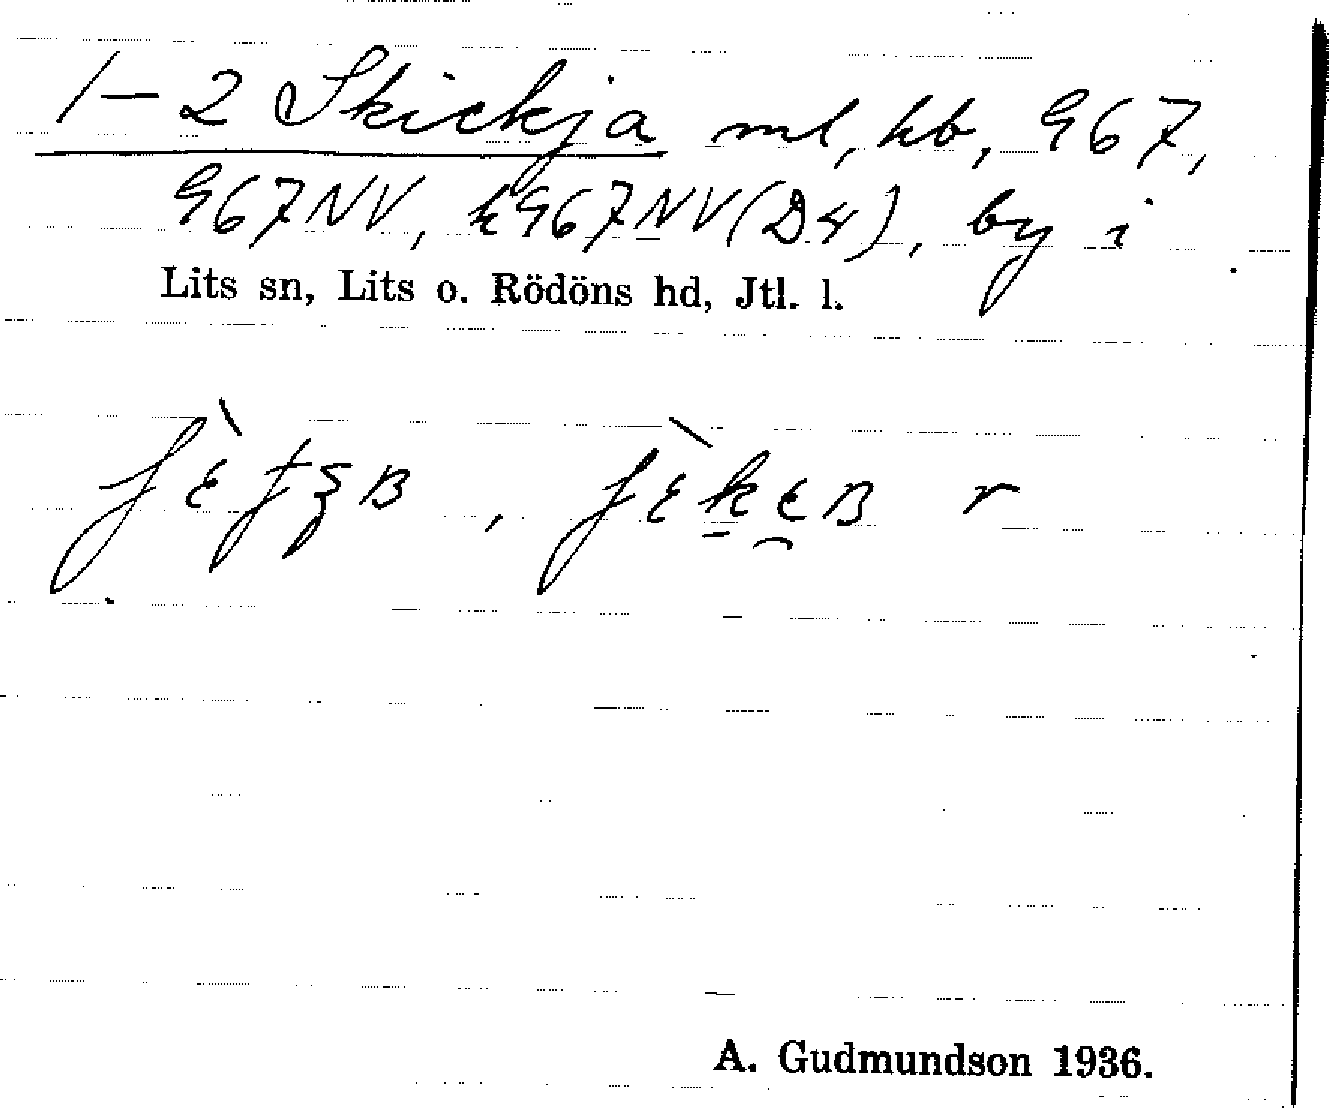 1–2 Skickja ml, hb, 967,
967NV, k967NV(D4), by i
Lits sn, Lits o. Rödöns hd, Jtl. l.
A. Gudmundson 1936.